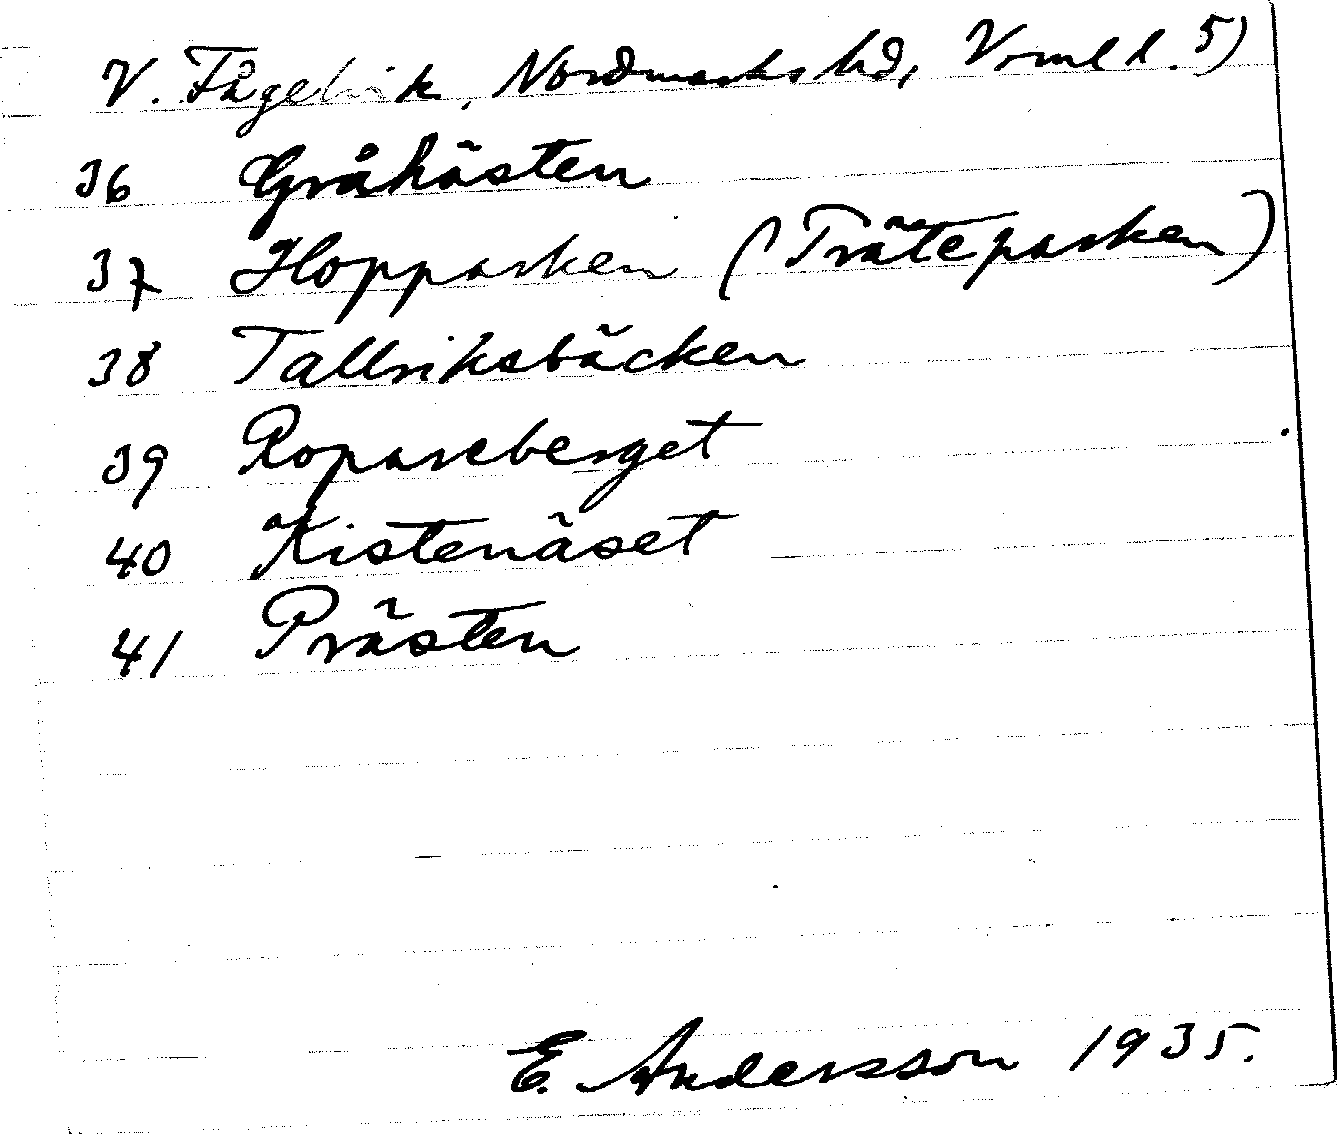 V. Fågelvik, Nordmarks hd, Vrml d. 5)
36 Gråhästen
37 Hopparken (Träteparken)
38 Tallriksbäcken
39 Ropareberget
40 Kistenäset
41 Prästen
E. Andersson 1935.